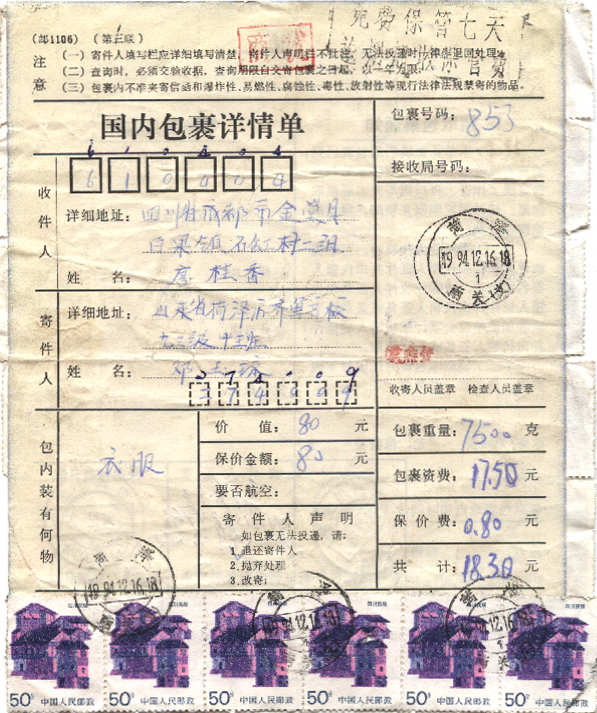 (邮1106) (第 联)
免费保管七天
商优
注意
(一) 寄件人填写栏应详细填写清楚,寄件人声明栏不批注,无法投递时依法律退回处理。
(二) 查询时,必须交验收据,查询期限自交寄包裹之日起,以一年为限。
(三) 包裹内不准夹寄信函和爆炸性、易燃性、腐蚀性、毒性、放射性等现行法律法规禁寄的物品。
国内包裹详情单
包裹号码: 853
接收局号码:
610404
收件人
详细地址: 四川省成都市金堂县
白果镇 石缸村二组
姓名: 廖桂香
菏泽
1994.12.16.18
1
南关(支)
寄件人
详细地址: 山东省菏泽
十二级十三班
姓名: 邓
374999
收寄人员盖章 检查人员盖章
包内装有何物
衣服
价值: 80 元
保价金额: 80 元
要否航空:
寄件人声明
如包裹无法投递,请:
1.退还寄件人
2.抛弃处理
3.改寄:
包裹重量: 7500 克
包裹资费: 17.50 元
保价费: 0.80 元
共计: 18.30 元
菏泽
1994.12.16.18
菏泽
1994.12.16.18
菏泽
1994.12.16.18
四川民居
50分 中国人民邮政
50分 中国人民邮政
50分 中国人民邮政
50分 中国人民邮政
50分 中国人民邮政
50分 中国人民邮政